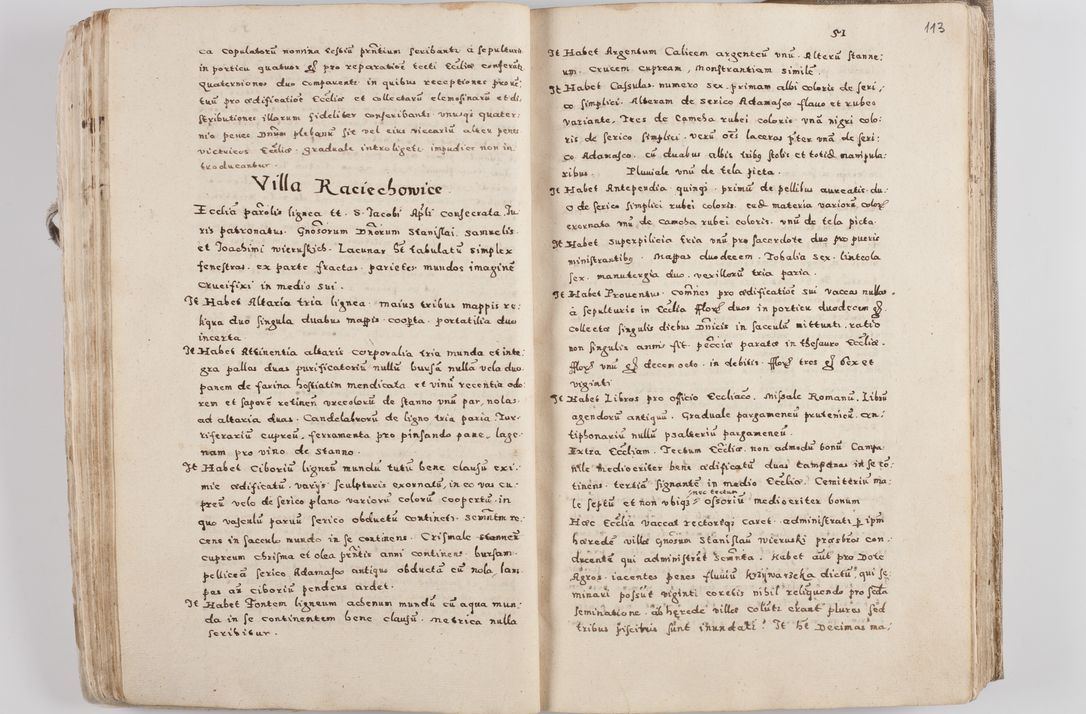 ca copulatorū nomina testiū prñtium scribantr à sepulturis
in porticu quatuor gr̃ pro reparatioē tecti Eccliæ conferātr
Quaterniones duo comparentr in quibus receptiones prove:
tuū pro ædificatioē Eccliæ et collectarū elemosinarū et di,
stributiones illarum fideliter conscribantr unusqs quater:
nio penes Dnūm plebanū sive vel eius viccariū alter penes
victricos Eccliæ. graduale introligetr impudicæ non in
troducantur.
Villa Raciechowice
Ecclia parolis lignea tt. S. Jacobi Apli consecrata Iu
ris patronatus. Gnosorum Dnorum Stanislai. Samuelis.
et Joachimi wieruskich. Lacunar ht tabulatū simplex
fenestras. ex parte fractas. parietes mundos imaginē
Crucifixi in medio sui.
It Habet Altaria tria lignea. maius tribus mappis re,
liqua duo singula duabus mappis coopta. portatilia duo
incerta.
It Habet Attinentia altaris corporalia tria munda et inte:
gra pallas duas purificatoriū nullū bursā nullā vela duo.
panem de farina hostiatim mendicata et vinū recentia odo:
rem et saporē retinen urceolorū de stanno unū par, nolas
ad altaria duas. Candelabrorū de ligno tria paria. Tur:
riferariū cupreū, ferramenta pro pinsando pane, lage:
nam pro vino de stanno.
It Habet Ciboriū ligneū mundū tutū bene clausū exi:
miè ædificatū. varys sculpturis exornatū, in eo vas cu:
preū velo de serico plano variorū colorū coopertū. in
quo vasculū parvū serico obductū continetr. Scrmētm re:
cens in sacculo mundo in se continens. Crismale stanneū
cupreum chrisma et olea prñtis anni continens. bursam.
pelliceā serico Adamasco antiquo obductā cū nola, lam
pas añ ciboriū pendens ardet.
It Habet Fontem ligneum ahenum mundū cū aqua mun:
da in se continentem bene clausū. metrica nulla
scribitur.
51
113
It Habet Argentum Calicem argenteū unū. Alterū stanne:
um. Crucem cupream, Monstrantiam similē.
It Habet Casulas numero sex. primam albi coloris de seri,
co simplici. Alteram de serico Adamasco flavo et rubeo
variante, Tres de Camcha rubei coloris. unā nigri colo:
ris de serico simplici. verū oēs laceras pter unā de seri:
co Adamasco. cū duabus albis tribus stolis et totid manipula:
ribus. Pluviale unū de tela picta.
It Habet Antependia quinqs. primū de pellibus aureatis. du:
o de serico simplici rubei coloris. ead materia variorū color
exornata unū de Camcha rubei coloris. unū de tela picta.
It Habet Superpiliceia tria unū pro sacerdote duo pro pueris
ministrantibus. Mappas duodecem. Tobalia sex. linteola
sex. manutergia duo. vexillorū tria paria.
It Habet Proventus. comñes pro ædificatioē sui vaccas nullas.
à sepulturis in Eccliā flor duos in porticu duodecem gr̃.
collectæ singulis diebus Dnicis in sacculū mittuntr. ratio
non singulis annis fit. pecciæ paratæ in thesauro Eccliæ.
flor unū gr̃ decem octo. in debitis. flor tres gr̃ sex et
viginti
It Habet Libros pro officio Eccliaco. Missale Romanū. Librū
agendorū antiquū. Graduale pargameneū prutenicū. an:
tiphonariū nullū psalteriū pargameneū.
Extra Eccliam. Tectum Eccliæ non admodū bonū Campa
nile mediocriter bene ædificatū duas campanas in se co:
tinens. tertiā signantē in medio Eccliæ. Cemiteriū ma:
le septū et non ubiqs nec tectum ossoriū mediocriter bonum
Hæc Ecclia vaccat rectoreqs caret. administratr p ipm
hæredē villæ gnosum Stanislaū wieruski præsbros con,
ducentē qui administrēt Scrmēta. Habet aūt pro Dote
Agros. iacentes penes fluviū Krzywarzeka dictū, qui se,
minari possūt viginti coretis nihil relinquendo pro secūda
seminatione. ab hærede villæ coluntr erant plures sed
tribus piscinis sunt inundati. It ht Decimas ma: